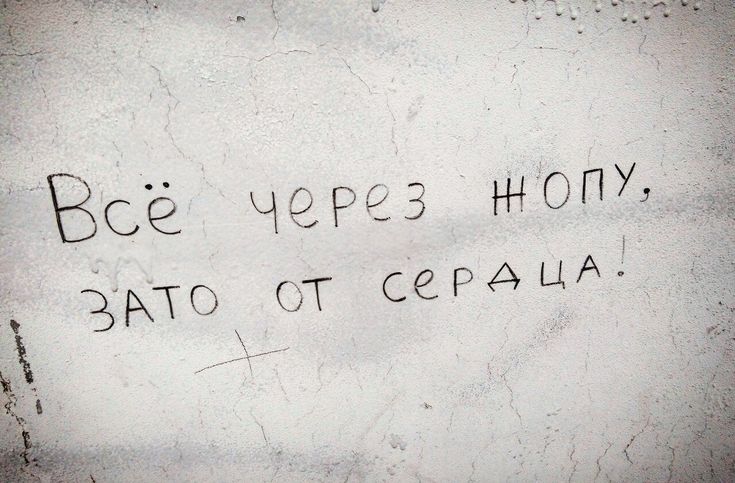 Всё через жопу,
зато от сердца!